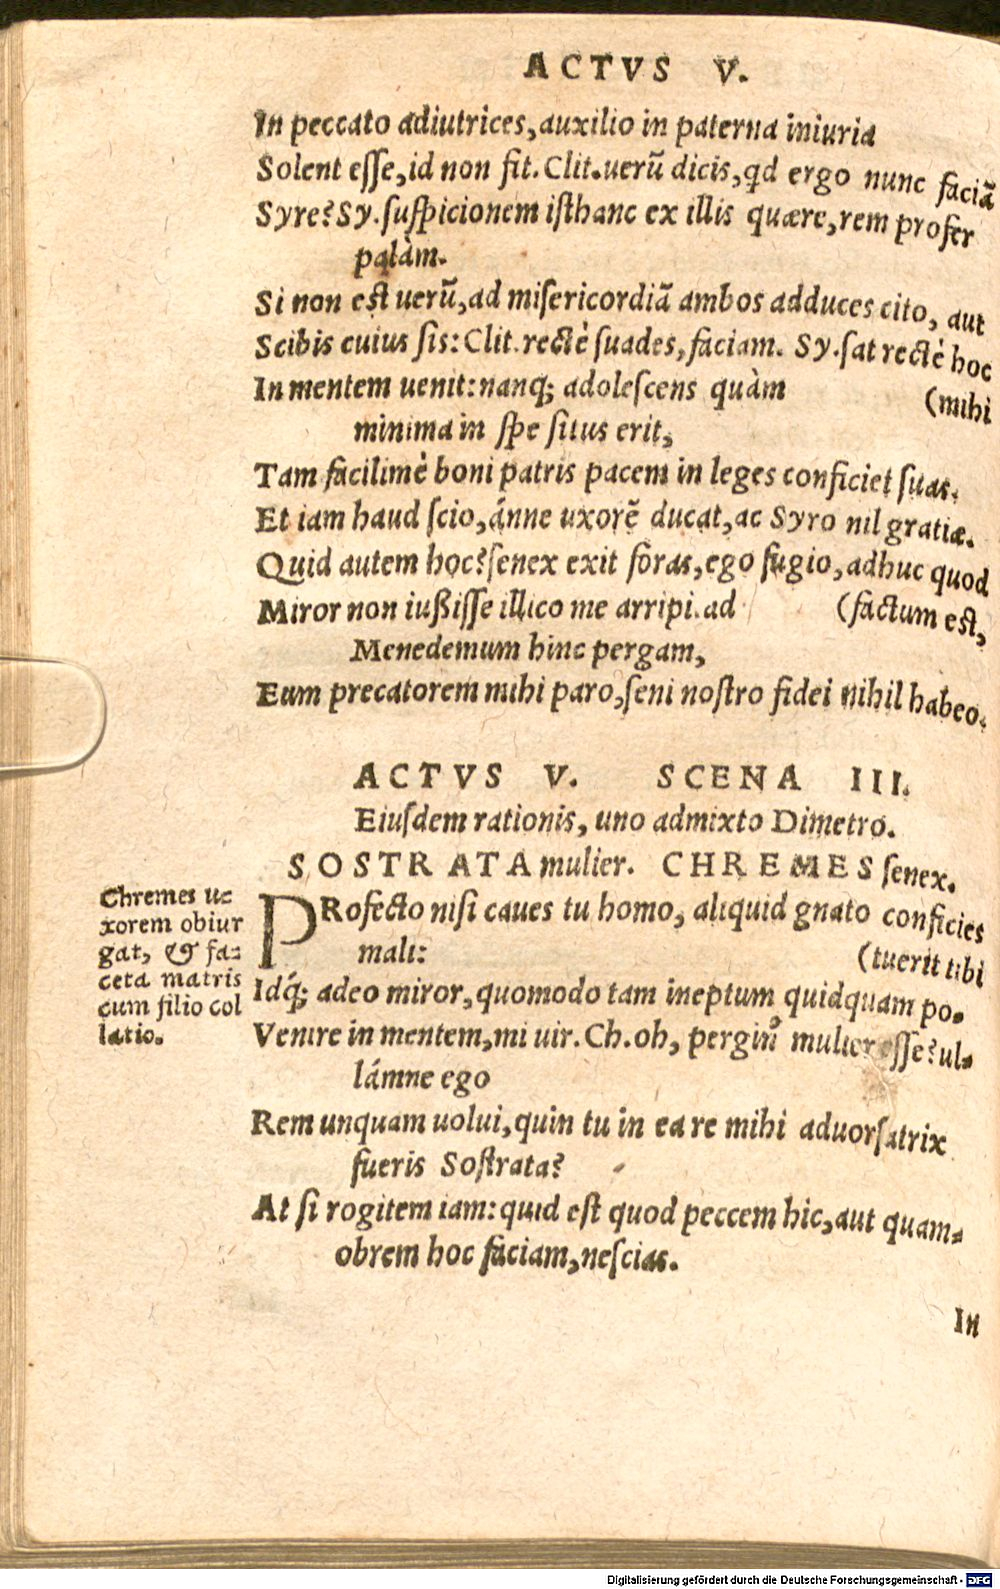 ACTVS V.
In peccato adiutrices, auxilio in paterna iniuria
Solent esse, id non fit. Clit. uerũ dicis, qd ergo nunc faciã
Syre? Sy. suspicionem isthanc ex illis quære, rem profer
palàm.
Si non est uerũ, ad misericordiã ambos adduces cito, aut
Scibis cuius sis: Clit. rectè suades, faciam. Sy. sat rectè hoc
In mentem uenit: nanq; adolescens quàm (mihi
minima in spe situs erit,
Tam facilimè boni patris pacem in leges conficiet suas.
Et iam haud scio, ánne uxorẽ ducat, ac Syro nil gratiæ.
Quid autem hoc? senex exit foras, ego fugio, adhuc quod
Miror non iußisse illico me arripi. ad (factum est,
Menedemum hinc pergam,
Eum precatorem mihi paro, seni nostro fidei nihil habeo.
ACTVS V. SCENA III.
Eiusdem rationis, uno admixto Dimetro.
SOSTRATA mulier. CHREMES senex.
PRofecto nisi caues tu homo, aliquid gnato conficies
mali: (tuerit tibi
Idq́; adeo miror, quomodo tam ineptum quidquam po-
Venire in mentem, mi uir. Ch. oh, pergin̉ mulier esse? ul-
lámne ego
Rem unquam uolui, quin tu in ea re mihi aduorsatrix
fueris Sostrata?
At si rogitem iam: quid est quod peccem hic, aut quam-
obrem hoc faciam, nescias.
In
Chremes u-
xorem obiur
gat, & fa-
ceta matris
cum filio col
latio.
Digitalisierung gefördert durch die Deutsche Forschungsgemeinschaft - DFG